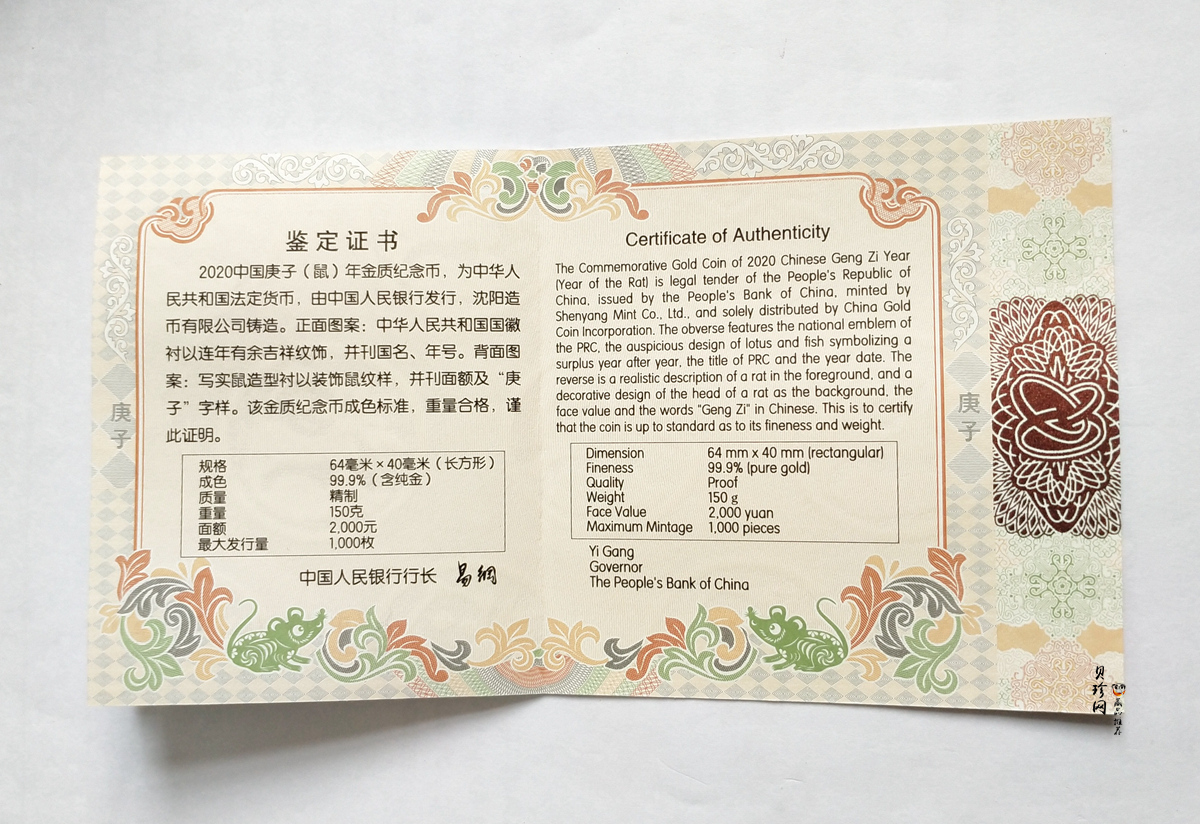 鉴定证书
2020中国庚子（鼠）年金质纪念币，为中华人
民共和国法定货币，由中国人民银行发行，沈阳造
币有限公司铸造。正面图案：中华人民共和国国徽
衬以连年有余吉祥纹饰，并刊国名、年号。背面图
案：写实鼠造型衬以装饰鼠纹样，并刊面额及“庚
子”字样。该金质纪念币成色标准，重量合格，谨
此证明。
规格 64毫米×40毫米（长方形）
成色 99.9%（含纯金）
质量 精制
重量 150克
面额 2,000元
最大发行量 1,000枚
中国人民银行行长 易纲
庚子
Certificate of Authenticity
The Commemorative Gold Coin of 2020 Chinese Geng Zi Year
(Year of the Rat) is legal tender of the People's Republic of
China, issued by the People's Bank of China, minted by
Shenyang Mint Co., Ltd., and solely distributed by China Gold
Coin Incorporation. The obverse features the national emblem of
the PRC, the auspicious design of lotus and fish symbolizing a
surplus year after year, the title of PRC and the year date. The
reverse is a realistic description of a rat in the foreground, and a
decorative design of the head of a rat as the background, the
face value and the words "Geng Zi" in Chinese. This is to certify
that the coin is up to standard as to its fineness and weight.
Dimension 64 mm x 40 mm (rectangular)
Fineness 99.9% (pure gold)
Quality Proof
Weight 150 g
Face Value 2,000 yuan
Maximum Mintage 1,000 pieces
Yi Gang
Governor
The People's Bank of China
庚子
贝珍网